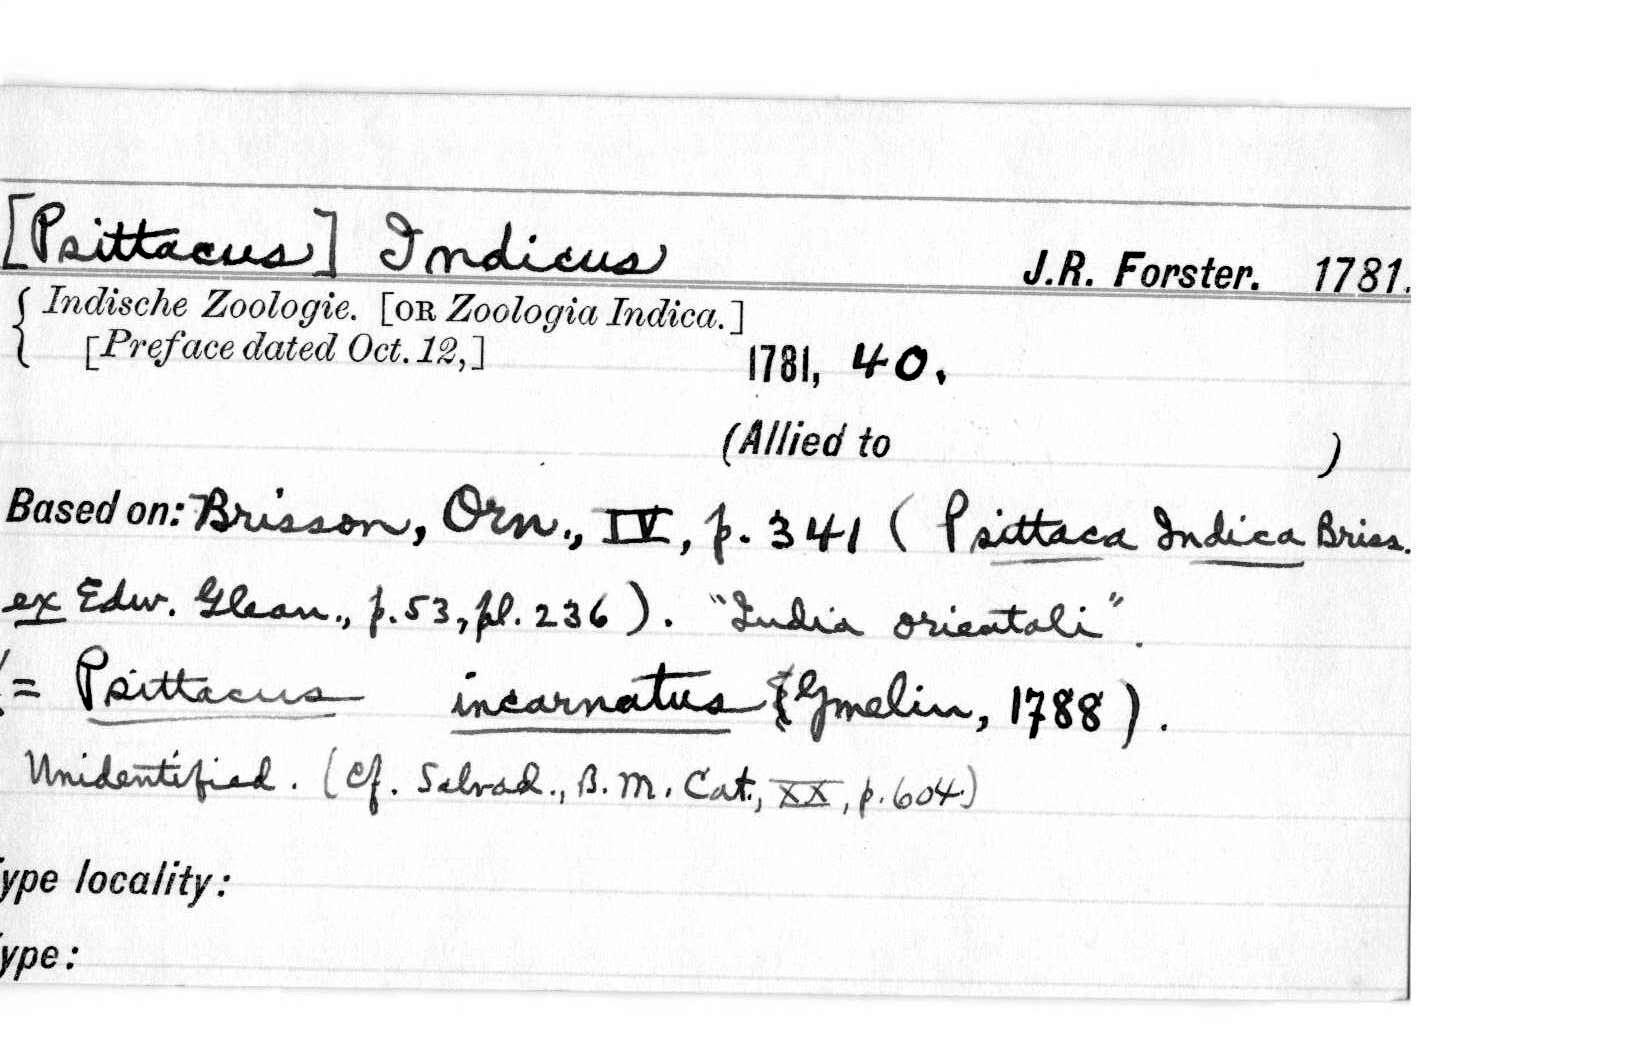 [Psittacus] Indicus J.R. Forster. 1781.
Indische Zoologie. [OR Zoologia Indica.]
[Preface dated Oct. 12,] 1781, 40.
(Allied to )
Based on: Brisson, Orn., IV, p. 341 (Psittaca Indica Briss.
ex Edw. Glean., p. 53, pl. 236). "India orientali".
(= Psittacus incarnatus Gmelin, 1788).
Unidentified. (Cf. Salvad., B. M. Cat., XX, p. 604)
ype locality:
ype: